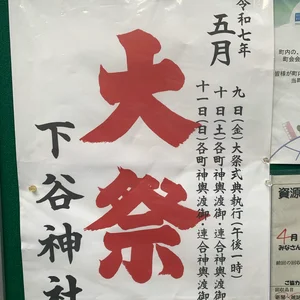 令和七年
五月
九日(金)大祭式典執行(午後一時)
十日(土)各町神輿渡御・連合神輿渡御
十一日(日)各町神輿渡御・連合神輿渡
大祭
下谷神社
町内の
町会会
皆様が
当町
資源
4月
みなさん